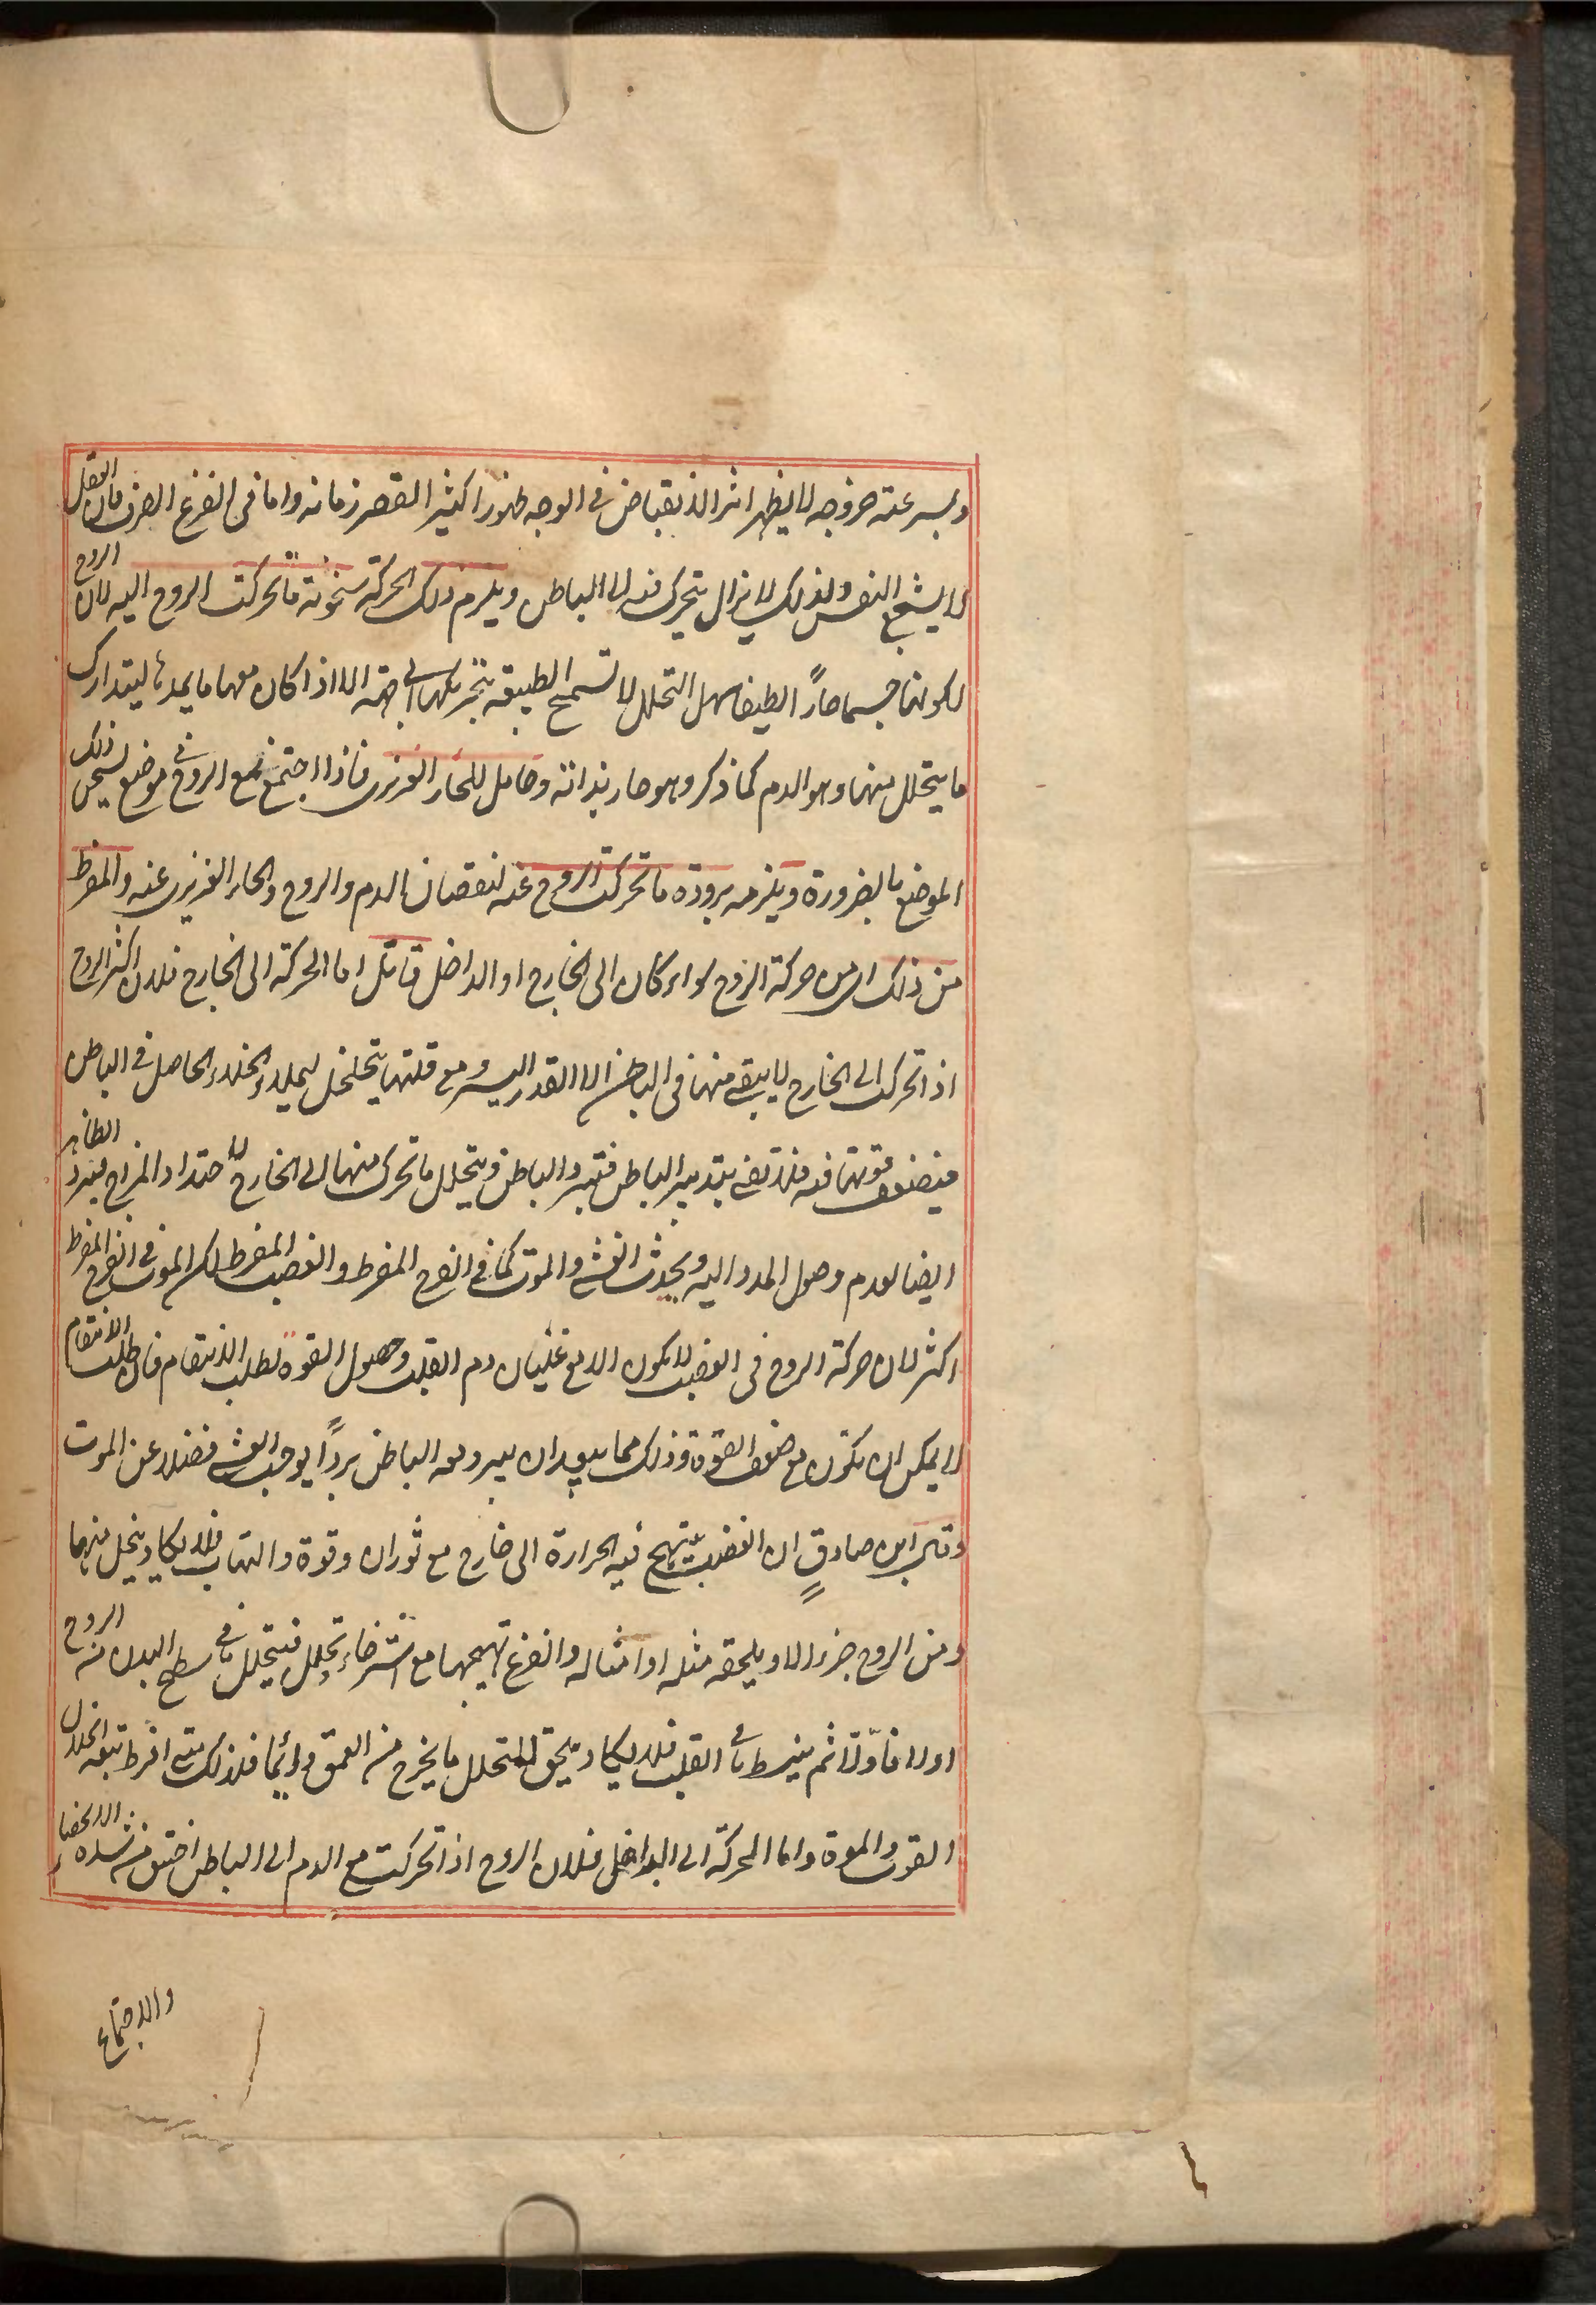 وبسرعته خروجه لا يظهر اثر الانقباض فى الوجه ظهورا كثيرا لقصر زمانه واما فى الفزع الصرف فان العقل
لا يشجع النفس ولذلك لا يزال يتحرك فيه الى الباطن ويلزم ذلك الحركة سخونة ما تحركت الروح اليه لان الروح
لكونها جسما حارًا لطيفا سهل التحلل لا تسمح الطبيعة بتحريكها الى جهة الا اذا كان معها ما يمدها ليتدارك
ما يتحلل منها وهو الدم كما ذكر وهو حار بذاته وحامل للحار الغريزى فاذا اجتمع مع الروح فى موضع يسخن ذلك
الموضع بالضرورة ويلزمه برودة ما تحركت الروح عنه لنقصان الدم والروح والحار الغريزى عنه والمفرط
من ذلك اى من حركة الروح سواء كان الى الخارج او الداخل قاتل اما الحركة الى الخارج فلان اكثر الروح
اذا تحركت الى الخارج لا يبقى منها فى الباطن الا القدر اليسير ومع قلتها يتخلخل ليملاء الخلاء الحاصل فى الباطن
فيضعف قوتها فيه فلا تفى بتدبير الباطن فتبرد الباطن ويتحلل ما تحرك منها الى الخارج لاحتداد المزاج فيبرد الظاهر
ايضا لعدم وصول المدد اليه ويحدث الغشى والموت كما فى الفرح المفرط والغضب المفرط لكن الموت فى الفرح المفرط
اكثر لان حركة الروح فى الغضب لا يكون الا مع غليان دم القلب وحصول القوة لطلب الانتقام فان طلب الانتقام
لا يمكن ان يكون مع ضعف القوة وذلك مما يبعد ان يبرد معه الباطن بردًا يوجب الغشى فضلا عن الموت
وقال ابن صادقٍ ان الغضب يتهيج فيه الحرارة الى خارج مع ثوران وقوة والتهاب فلا يكاد يتحلل منها
ومن الروح جزء الا ويلحقه مثله او امثاله والفرح تهيجها مع استرخاء وتحلل فيتحلل ما فى سطح البدن من الروح
اولا فاوّلا ثم ينبسط ما فى القلب فلا يكاد يلحق المتحلل ما يخرج من العمق دائما فلذلك متى افرط تبعه انحلال
القوى والموت واما الحركة الى الداخل فلان الروح اذا تحركت مع الدم الى الباطن اختنق من شدة الانحصار
والاجتماع